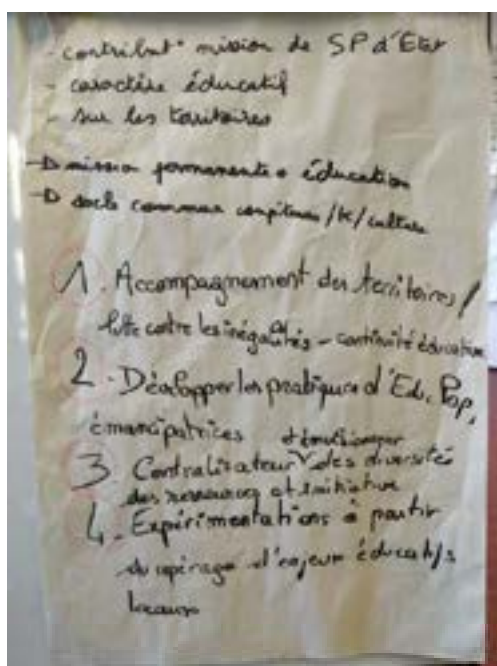 - contribut° mission de SP d'Etat
- caractère éducatif
- sur les territoires
→ mission permanente éducation
→ socle commun compétences / /culture
1. Accompagnement des territoires /
lutte contre les inégalités - continuité éducative
2. Développer les pratiques d'Edu. Pop,
émancipatrices
3 Centralisateur des diversités
des ressources et initiative
4. Expérimentations à partir
du repérage d'enjeux éducatifs
locaux